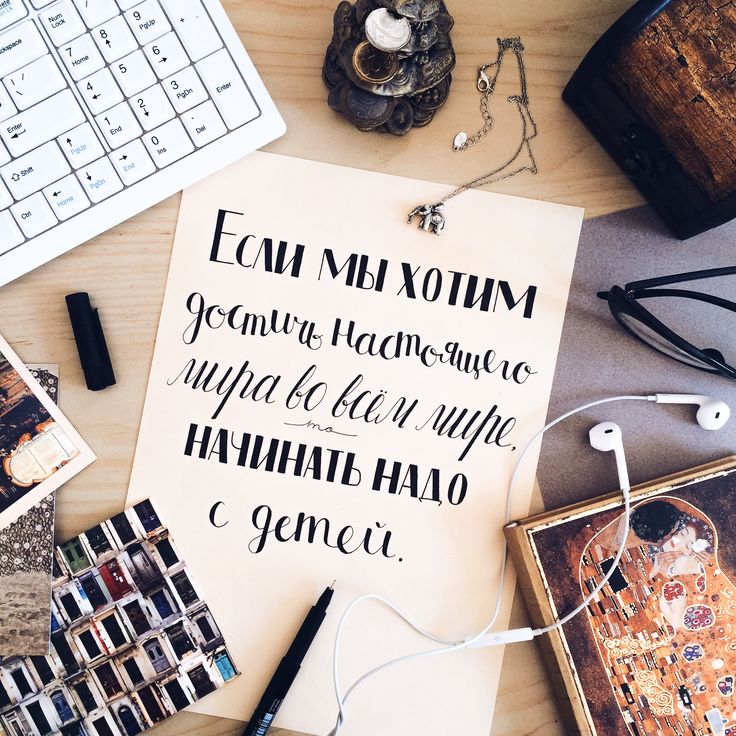 Если мы хотим
достичь настоящего
мира во всём мире,
то
начинать надо
с детей.
Num Lock
7 Home
8
9 PgUp
Backspace
4
5
6
Enter
1 End
2
3 PgDn
Enter
Shift
PgUp
0 Ins
. Del
Ctrl
PgDn
End